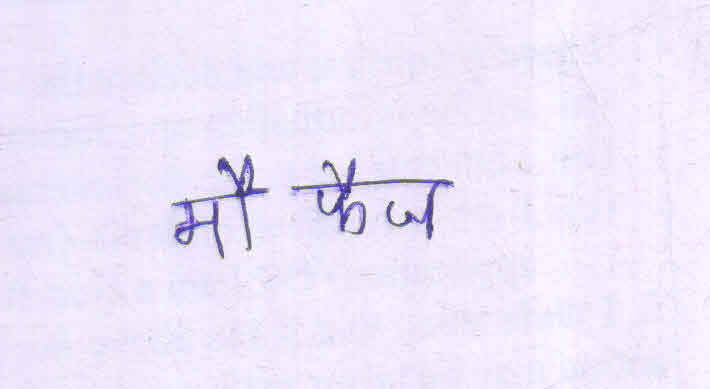 मौ फैज